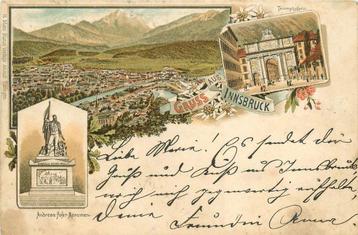 Triumphpforte.
GRUSS
AUS
INNSBRUCK
Andreas Hofer-Monument
Liebe Marie! Es sendet dir
Gruß und Kuß aus Innsbruck
mich gegenwärtig
deine Freundin Anna